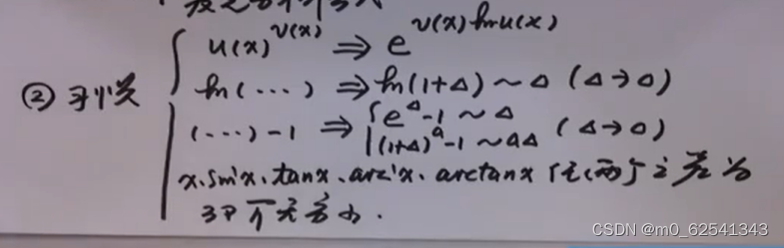 ② 习惯
u(x)^v(x) ⇒ e^v(x)lnu(x)
ln(···) ⇒ ln(1+Δ)~Δ (Δ→0)
(···)-1 ⇒ { e^Δ-1~Δ
(1+Δ)^a-1~aΔ (Δ→0)
x、sinx、tanx、arcsinx、arctanx 任两个之差为
3阶无穷小.
CSDN @m0_62541343